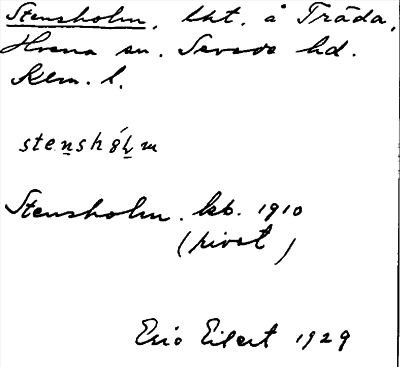 Stensholm, lht. å Träda,
Hvena sn. Sevede hd.
Kalm. l.
stenshȯl̲m
Stensholm. kb. 1910
(rivet)
Eric Eilert 1929